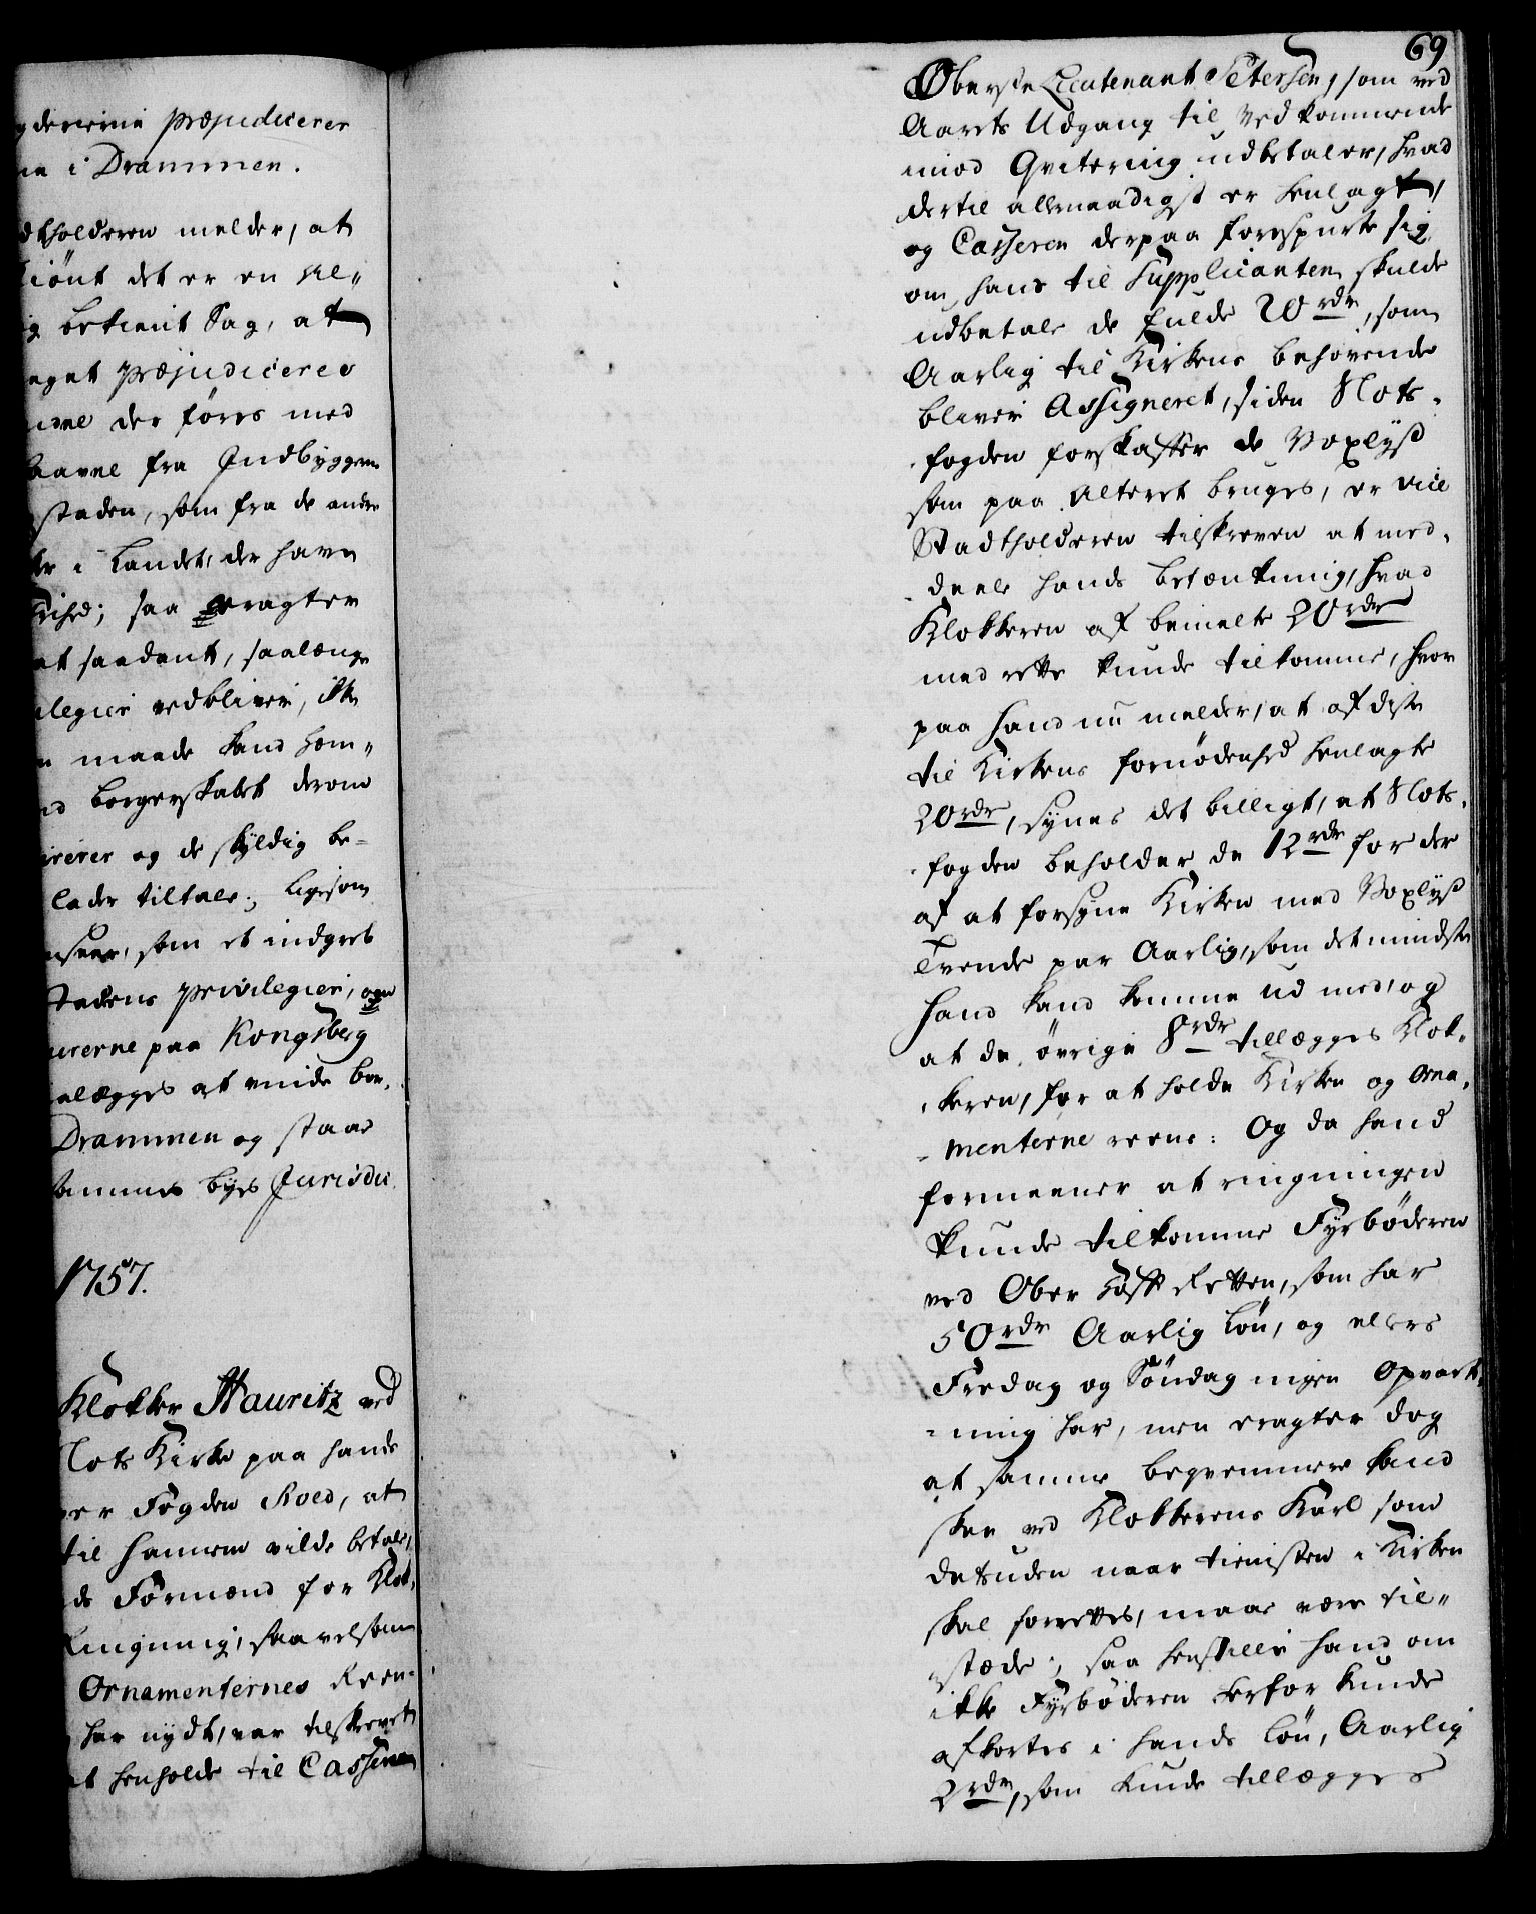 gderierne præjudicerer
ne i Drammen.
dtholderen melder, at
tiønt det er en al„
ig betient Sag, at
eget præjudicerer
der føres med
fra Indbyggerne
staden, som fra de andre
i Landet, der have
frihed; saa eragter
at saadant, saalænge
ilegier vedbliver, ikke
maade kand hæm„
borgerskabet derom
og de skyldig be-
lader tiltale; ligesom
som et indgreb
stadens privilegier, og
erne paa Kongsberg
lægges at vide bor„
Drammen og staae
sammes byes Jurisdic
1757.
Klokker Hauritz ved
Slots Kirke paa hands
over Fogden Roed, at
til hannem vilde betale,
de Formænd for Klok„
Ringning, saavelsom
Ornamenternes Reen-
har nydt, var tilskrevet
at henholde til Casseren
69
Oberste Lieutenant Petersen, som ved
Aarets Udgang til Vedkommende
imod Qvitering udbetaler, hvad
dertil allernaadigst er henlagt,
og Casseren derpaa forespurte sig
om hand til Supplicanten skulde
udbetale de fulde 20 rdr, som
Aarlig til Kirkens behøvende
bliver Assigneret, siden Slots-
fogden forskaffer de Voxlyß
som paa Alteret bruges, er vice
Stadtholderen tilskreven at med-
deele hands betænkning, hvad
Klokkeren af bemelte 20 rdr
med rette kunde tilkomme, hvor
paa hand nu melder, at af diße
til Kirkens fornødenhed henlagte
20 rdr, synes det billigt, at Slots-
fogden beholder de 12 rdr for der
af at forsyne Kirken med Voxlyß
Tvende par Aarlig, som det mindste
hand kand komme ud med, og
at de øvrige 8 rdr tillægges Klok-
keren, for at holde Kirken og Orna-
menterne reene: Og da hand
formeener at ringningen
kunde tilkomme Fyrbøderen
ved Ober Hoff Retten, som har
50 rdr Aarlig løn, og ellers
Fredag og Søndag ingen Opvart-
ning har, men eragter dog
at samme beqvemmere kand
skee ved Klokkerens Karl som
desuden naar tienisten i Kirken
skal forrettes, maae være til„
stæde; saa henstiller hand om
ikke Fyrbøderen herfor kunde
afkortes i hands løn, Aarlig
2 rdr, som kunde tillægges